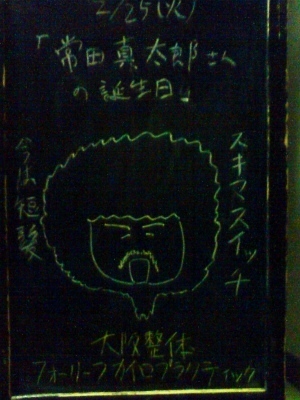 2/25(火)
「常田真太郎さん
の誕生日」
スキマスイッチ
今は短髪
大阪整体
フォーリーフカイロプラクティック